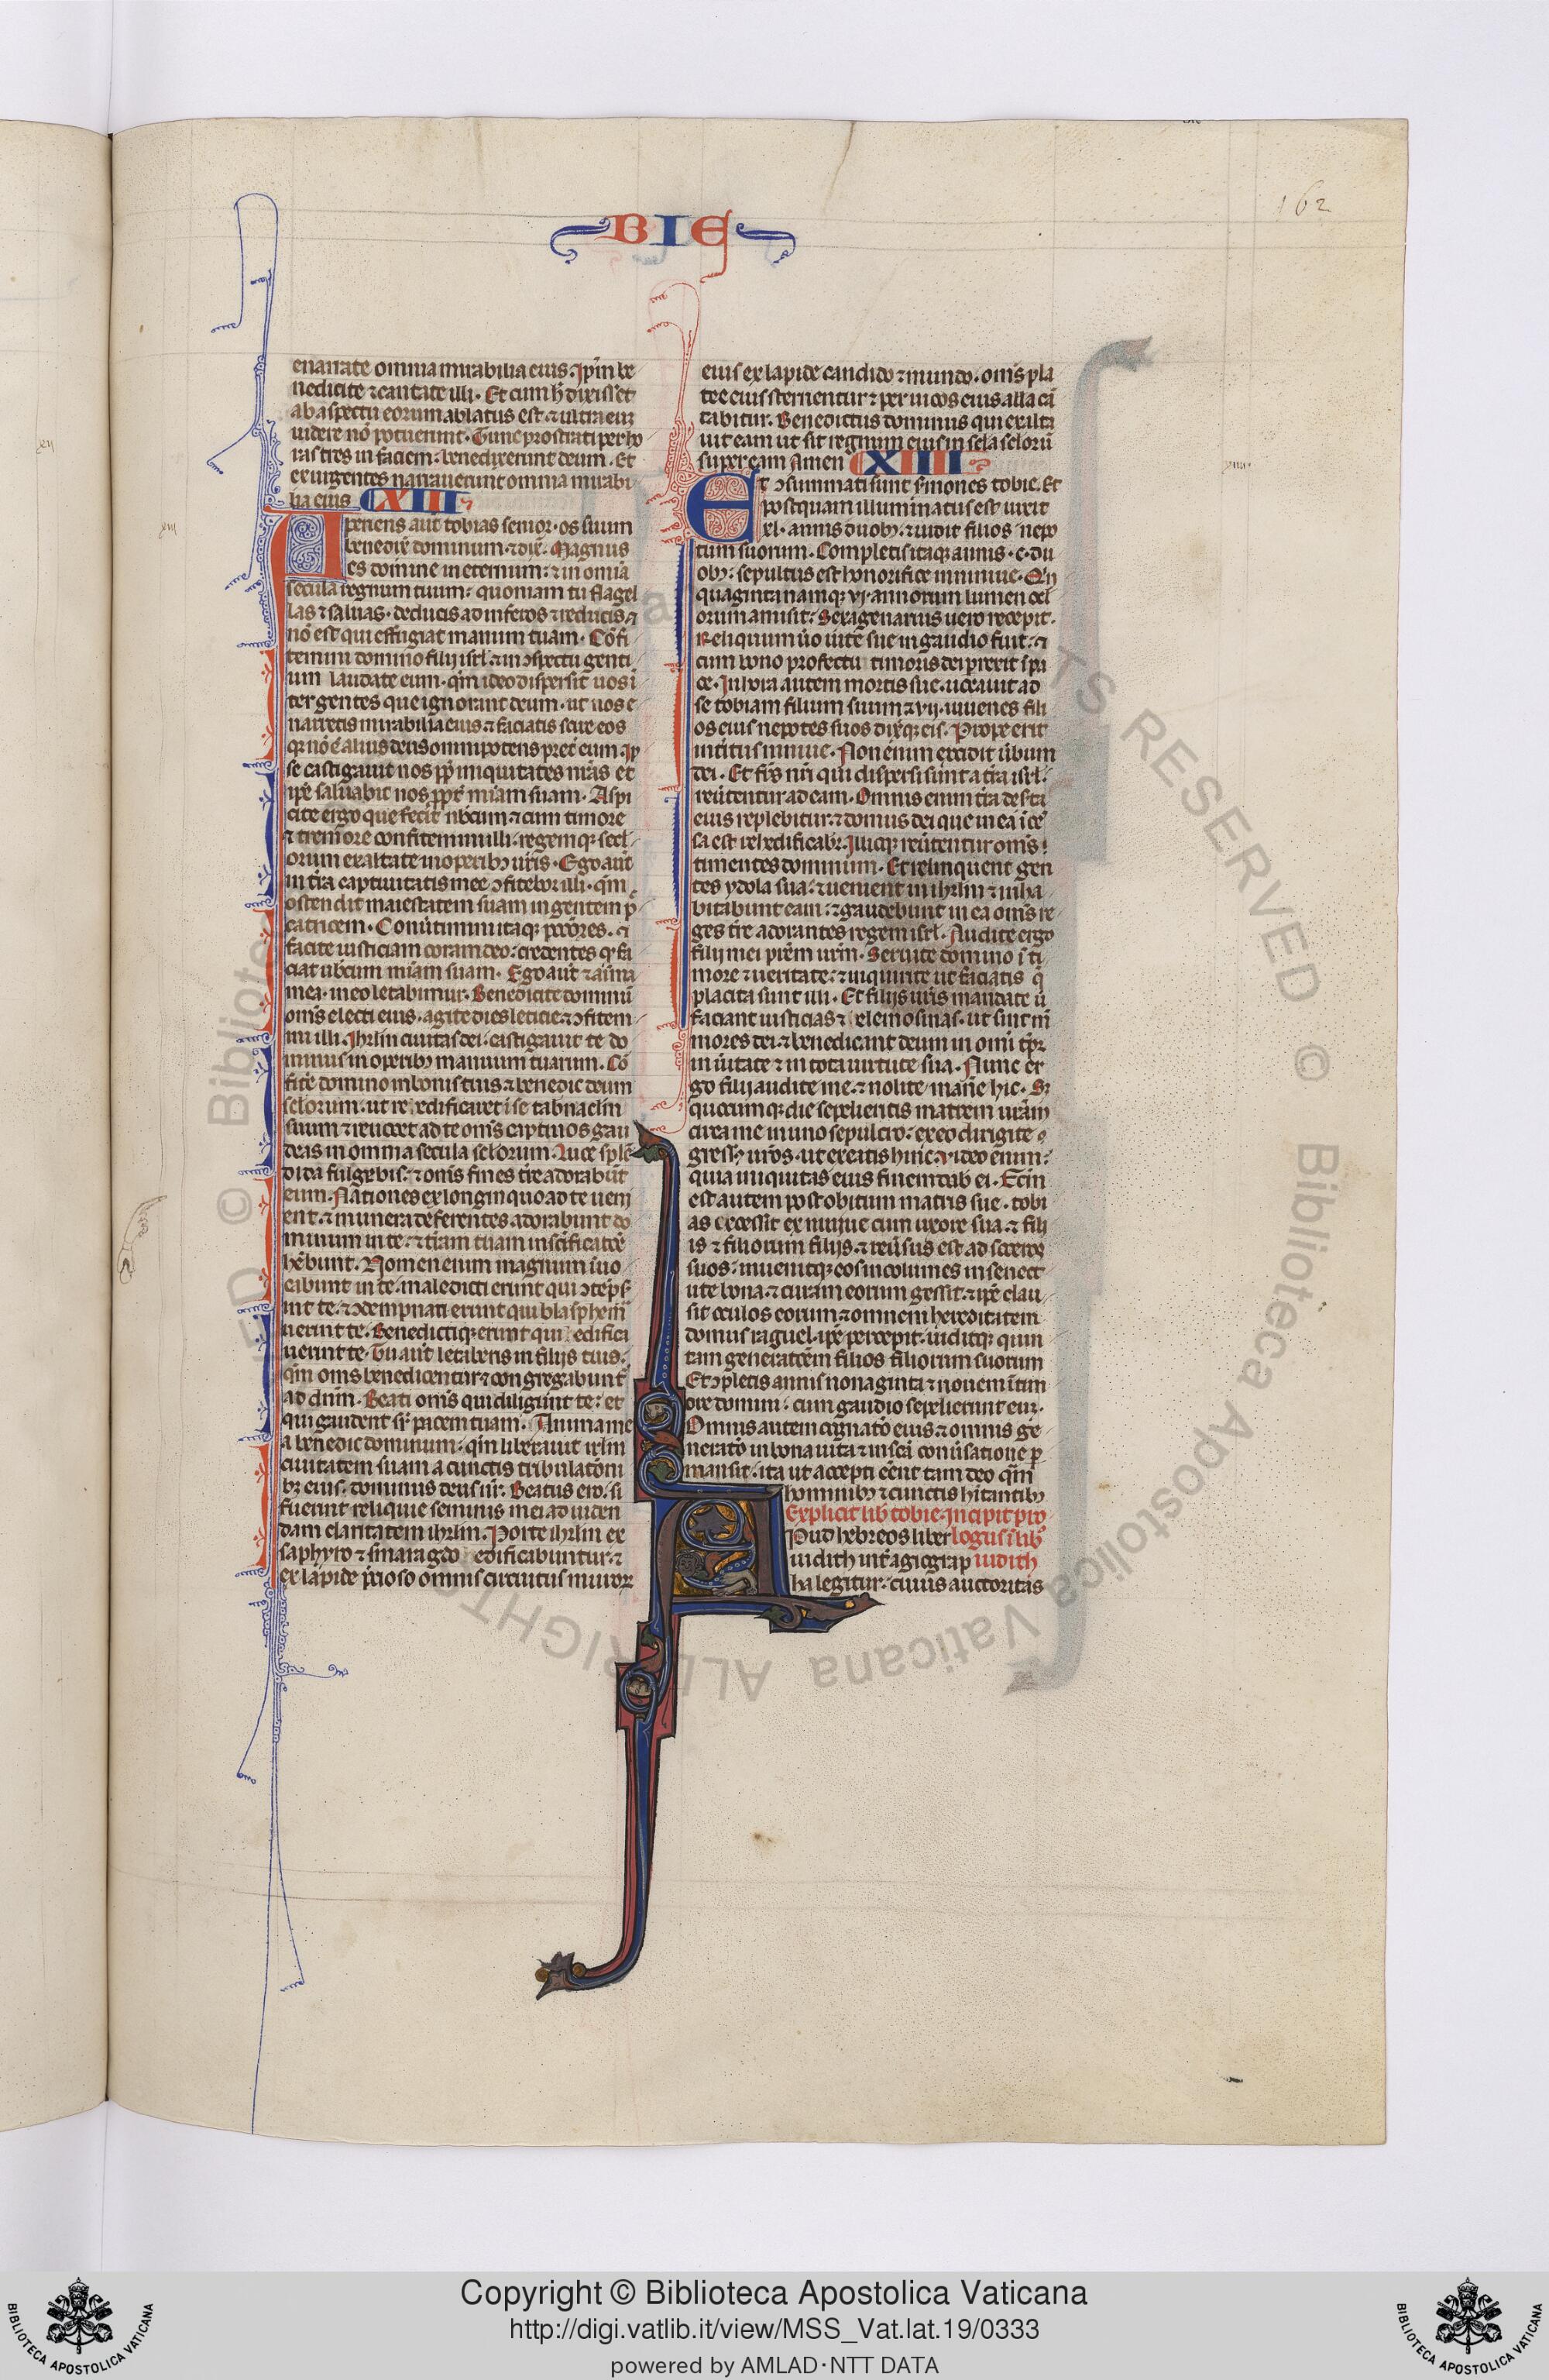 BIE
162
enarrate omnia mirabilia eius. Ip̃m be
nedicite ⁊ cantate illi. Et cum h̃ dixisset
ab aspectu eorum ablatus est. ⁊ ultra eum
uidere nõ potuerunt. Tunc prostrati per ho
ras tres in faciem: benedixerunt deum. Et
exurgentes narrauerunt omnia mirabi
lia eius. XIII
Aperiens aut̃ tobias senior. os suum
benedix̃ dominum. ⁊ dix̃. Magnus
es domine in eternum: ⁊ in omĩa
secula regnum tuum: quoniam tu flagel
las ⁊ saluas. deducis ad inferos ⁊ reducis. ⁊
nõ est qui effugiat manum tuam. Cõfi
temini domino filij isrl. ⁊ in ɔspectu genti
um laudate eum. qm̃ ideo dispersit uos ĩ
ter gentes que ignorant deum. ut uos e
narretis mirabilia eius. ⁊ faciatis scire eos
qr nõ ẽ alius deus omnipotens pret̃ eum. Ip
se castigauit nos pp̃ iniquitates nr̃as et
ip̃e saluabit nos ppt̃ mĩam suam. Aspi
cite ergo que fecit nobcum. ⁊ cum timore
⁊ tremore confitemini illi. regemq; secl
orum exaltate in operibꝫ ur̃is. Ego aut̃
in tr̃a captiuitatis mee ɔfitebor illi. qm̃
ostendit maiestatem suam in gentem pec
catricem. Conũtimini itaq; pctõres. ⁊
facite iusticiam coram deo: credentes qꝫ fa
ciat uobcum mĩam suam. Ego aut̃ ⁊ aĩma
mea. in eo letabimur. Benedicite dominũ
om̃s electi eius. agite dies leticie. ⁊ ɔfitem
ini illi. Ihrlm ciuitas dei. castigauit te do
minus in operibꝫ manuum tuarum. Cõ
fitẽ domino in bonis tuis. ⁊ benedic deum
sclorum. ut reedificauet ĩ te tabnaclm
suum ⁊ reuocet ad te om̃s captiuos. gau
deas in omnia secula sclorum. Luce splẽ
dida fulgebis. ⁊ om̃s fines tr̃e adorabũt
eum. Nationes ex longinquo ad te ueni
ent. ⁊ munera deferentes. adorabunt do
minum in te. ⁊ tr̃am tuam in sc̃ificatõe
hẽbunt. Nomen enim magnum inuo
cabunt in te. maledicti erunt qui ɔtẽps
int te. ⁊ ɔdempnati erunt qui blasphem̃
uerint te. Benedictiq; erunt qui edifica
uerint te. Tu aut̃ letaberis in filijs tuis.
qm̃ om̃s benedicentur. ⁊ congregabunt̃
ad dnm̃. Beati om̃s qui diligunt te: et
qui gaudent sr̃ pacem tuam. Anima me
a benedic dominum: qm̃ liberauit irlm
ciuitatem suam a cunctis tribulatõni
bꝫ eius. dominus deus nr̃. Beatus ero. si
fuerint reliquie seminis mei. ad uiden
dam claritatem ihrlm. Porte ihrlm ex
saphyro ⁊ smaragdo edificabuntur. ⁊
ex lapide p̃cioso omnis circuitus muroꝝ
eius ex lapide candido ⁊ mundo. om̃s pla
tee eius sternentur ⁊ per uicos eius alla cã
tabitur. Benedictus dominus qui exalta
uit eam ut sit regnum eius in scla sclorũ
super eam Amen XIIII
Et ɔsummati sunt s̃mones tobie. Et
postquam illuminatus est uixit
xl. annis duobꝫ. ⁊ uidit filios nepo
tum suorum. Completis itaq; annis. c. du
obꝫ: sepultus est honorifice in niniue. Qꝫn
quaginta namq; vj. annorum lumen ocl
orum amisit: Sexagenarius uero recepit.
Reliquum ũo uite sue in gaudio fuit. ⁊
cum bono profectu timoris dei prexit ĩ pa
ce. In hora autem mortis sue. uocauit ad
se tobiam filium suum ⁊ vij. iuuenes fili
os eius nepotes suos dix̃q; eis. Prope erit
intitus niniue. Non enim excidit ũbum
dei. Et frẽs nr̃i qui dispersi sunt a tr̃a isrl.
reũtentur ad eam. Omnis enim tr̃a deserta
eius replebitur. ⁊ domus dei que in ea ĩcẽ
sa est reedificabr̃. Illicq; reũtentur om̃s
timentes dominum. Et relinquent gen
tes ydola sua. ⁊ uenient in ihrlm ⁊ inha
bitabunt eam: ⁊ gaudebunt in ea om̃s re
ges tr̃e adorantes regem isrl. Audite ergo
filij mei patr̃em ur̃m. Seruite domino ĩ ti
more ⁊ ueritate. ⁊ inquirite ut faciatis q̃
placita sunt illi. Et filijs ur̃is mandate ũ
faciant iusticias ⁊ elemosinas. ut sint m̃
mores dei. ⁊ benedicant deum in omĩ tp̃r
in ũitate ⁊ in tota uirtute sua. Nunc er
go filij audite me. ⁊ nolite mañe hic. S;
quocumq; die sepelieritis matrem ur̃am
circa me in uno sepulcro: ex eo dirigite
gressꝰ ur̃os. ut exeatis hinc. uideo enim:
quia iniquitas eius finem dab ei. Fctm̃
est autem post obitum matris sue. tobi
as excessit ex niniue cum uxore sua. ⁊ fili
is ⁊ filiorum filijs. ⁊ reũsus est ad soceros
suos. inuenitq; eos incolumes in senect
ute bona. ⁊ curam eorum gessit. ⁊ ip̃e clau
sit oculos eorum. ⁊ omnem hereditatem
domus raguel. ip̃e percepit. uiditq; quin
tam generatõem filios filiorum suorum
Et ɔpletis annis nonaginta ⁊ nouem ĩ tim
ore domini: cum gaudio sepelierunt eum.
Omnis autem cognatõ eius. ⁊ omnis ge
neratõ in bona uita ⁊ in sc̃a conũsatione p̃
mansit. ita ut accepti eẽnt tam deo qm̃
hominibꝫ ⁊ cunctis hĩtantibꝫ
Explicit lib̃ tobie. Incipit pro
logus ĩ lib̃ iudith
Apud hebreos liber
iudith int̃ agiograp
ha legitur: cuius auctoritas
Copyright © Biblioteca Apostolica Vaticana
http://digi.vatlib.it/view/MSS_Vat.lat.19/0333
powered by AMLAD·NTT DATA
BIBLIOTECA APOSTOLICA VATICANA
BIBLIOTECA APOSTOLICA VATICANA